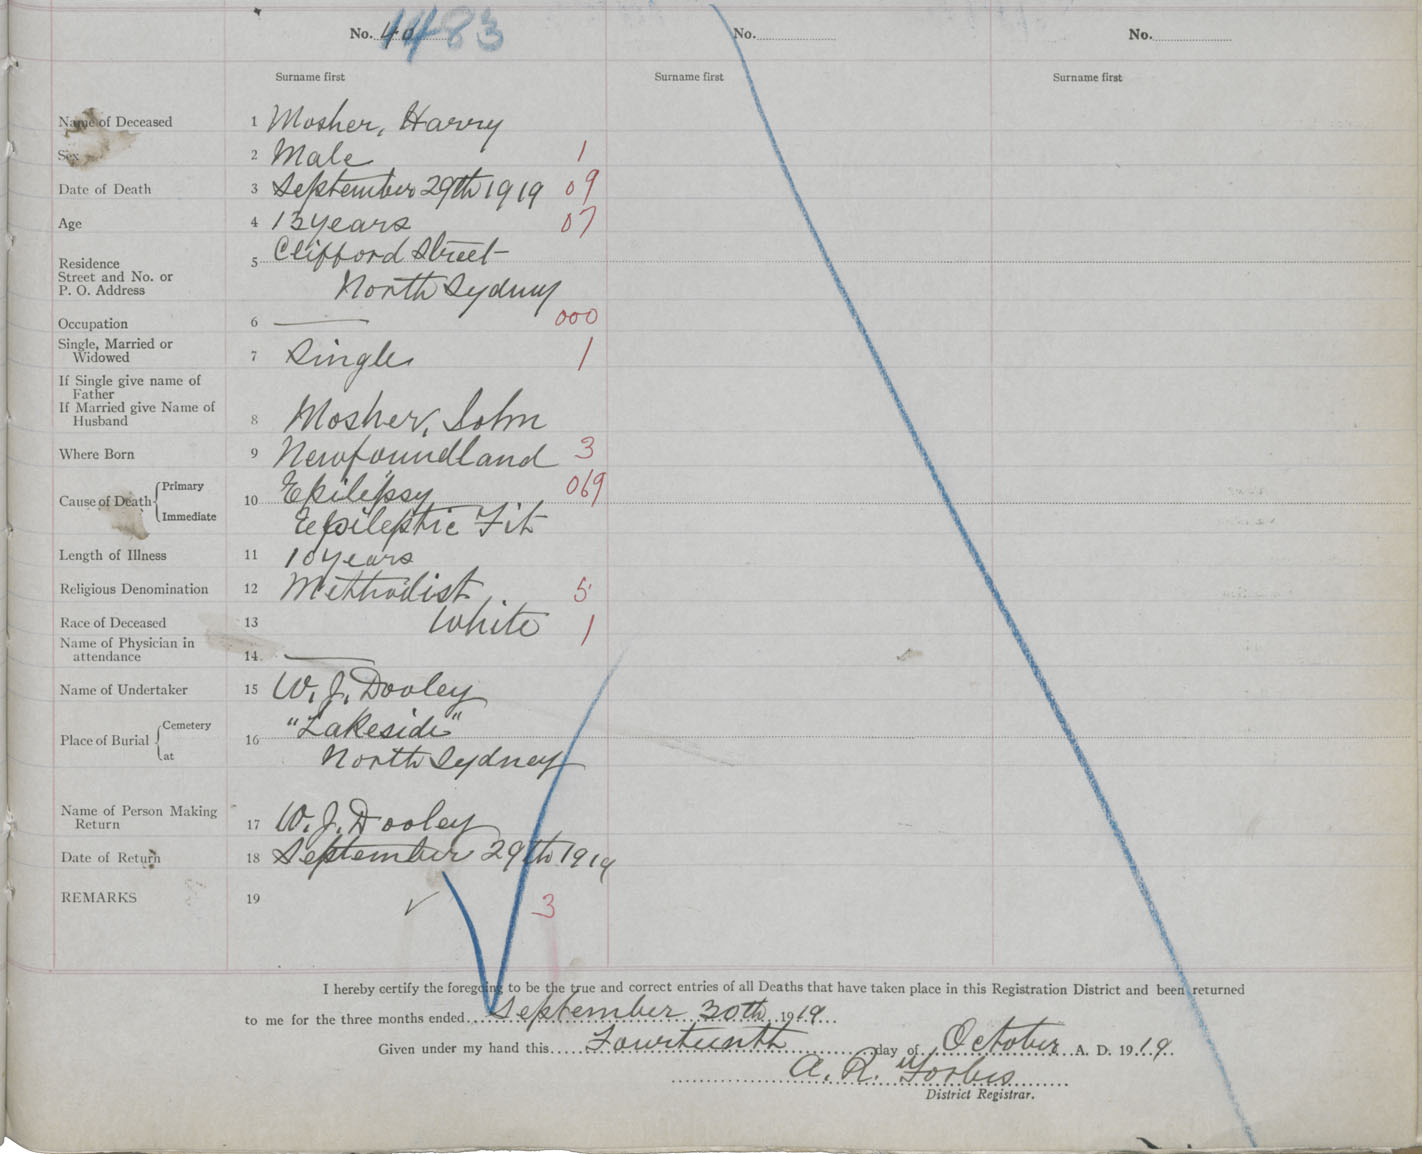 No. 40 1483 No. No.
Surname first Surname first Surname first
Name of Deceased 1 Mosher, Harry
Sex 2 Male 1
Date of Death 3 September 29th 1919 09
Age 4 13 years 07
Residence Street and No. or P. O. Address 5 Clifford Street
North Sydney
Occupation 6 — 000
Single, Married or Widowed 7 Single 1
If Single give name of Father
If Married give Name of Husband 8 Mosher, John
Where Born 9 Newfoundland 3
Cause of Death Primary 10 Epilepsy 069
Immediate Epileptic Fit
Length of Illness 11 10 years
Religious Denomination 12 Methodist 5
Race of Deceased 13 White 1
Name of Physician in attendance 14 —
Name of Undertaker 15 W. J. Dooley
Place of Burial Cemetery 16 "Lakeside"
at North Sydney
Name of Person Making Return 17 W. J. Dooley
Date of Return 18 September 29th 1919
REMARKS 19 ✓ 3
I hereby certify the foregoing to be the true and correct entries of all Deaths that have taken place in this Registration District and been returned
to me for the three months ended September 30th 1919
Given under my hand this Fourteenth day of October A. D. 1919.
A. R. Forbes
District Registrar.